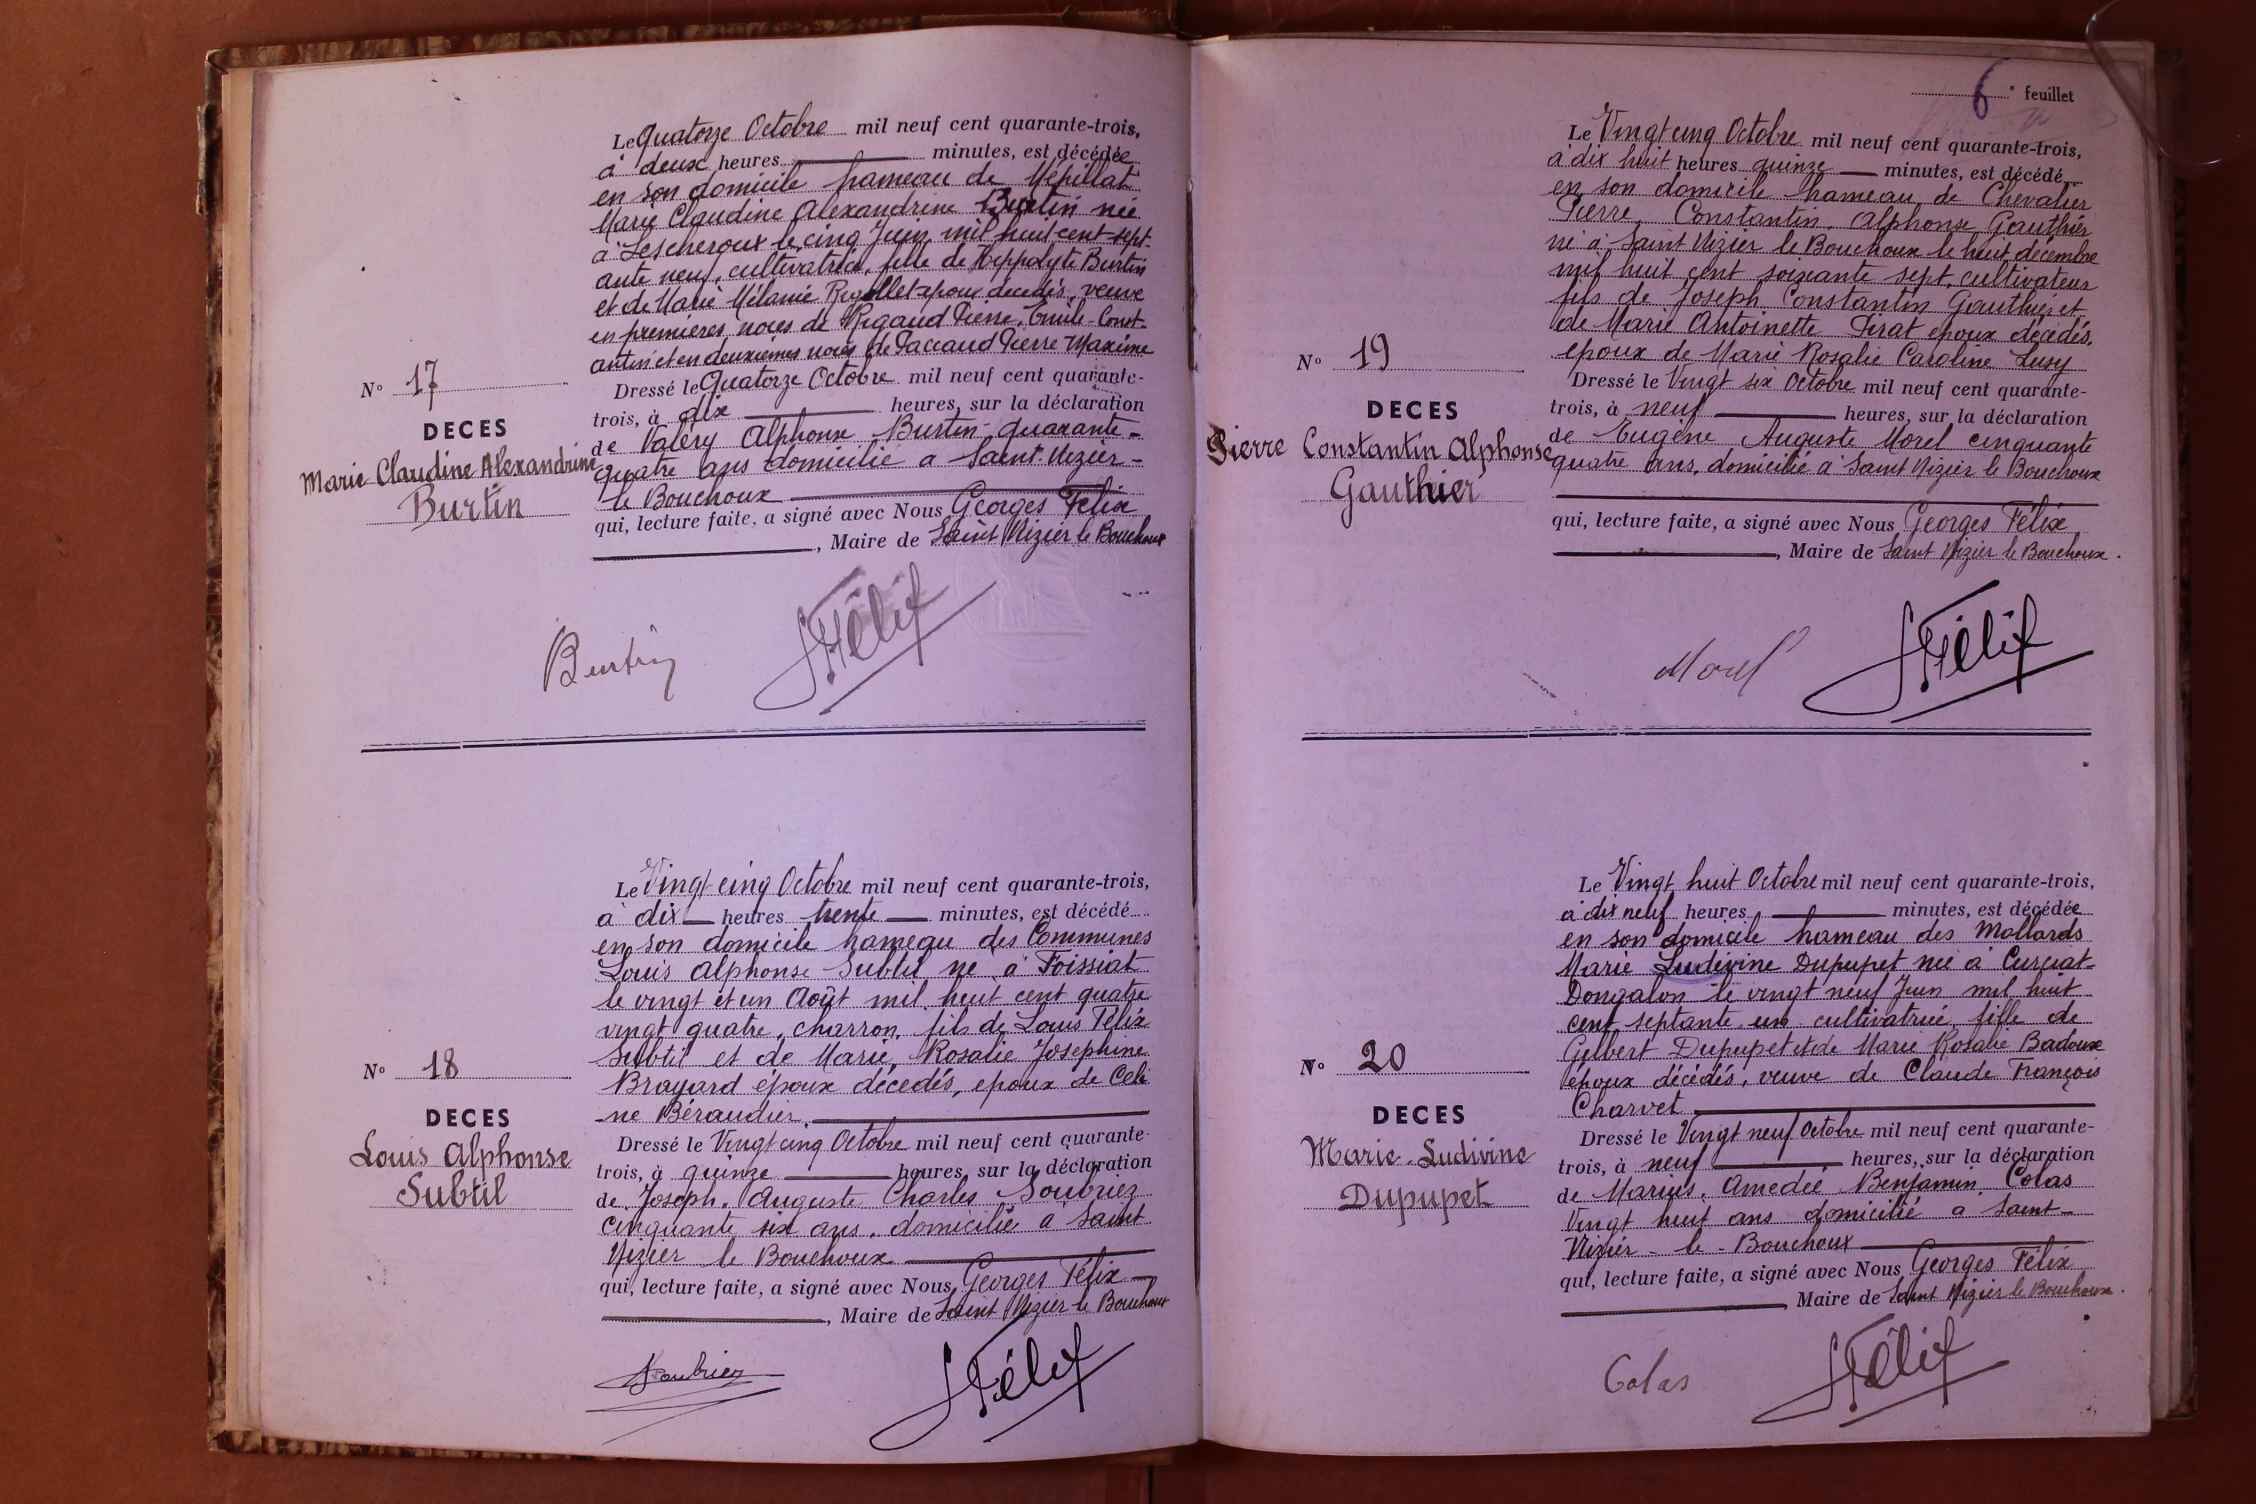 Le Quatorze Octobre mil neuf cent quarante-trois,
à deux heures minutes, est décédée
en son domicile hameau de Mépillat
Marie Claudine Alexandrine Burtin née
à Lescheroux le cinq Juin mil huit cent sept-
ante neuf, cultivatrice, fille de Hippolyte Burtin
et de Marie Mélanie époux décédés, veuve
en premières noces de Rigaud Pierre, Emile-Const-
antin et en deuxièmes noces de Paccaud Pierre Maxime
N° 17
DECES
Marie Claudine Alexandrine
Burtin
Dressé le Quatorze Octobre mil neuf cent quarante-
trois, à dix heures, sur la déclaration
de Valéry Alphonse Burtin quarante-
quatre ans domicilié à Saint Nizier-
le Bouchoux
qui, lecture faite, a signé avec Nous Georges Félix
, Maire de Saint Nizier le Bouchoux
Burtin
Félix
Le Vingt cinq Octobre mil neuf cent quarante-trois,
à dix heures trente minutes, est décédé
en son domicile hameau des Communes
Louis Alphonse Subtil né à Foissiat
le vingt et un Août mil huit cent quatre
vingt quatre, charron, fils de Louis Félix
Subtil et de Marie, Rosalie Joséphine
Brayard époux décédés, époux de Céli
ne Béraudier.
N° 18
DECES
Louis Alphonse
Subtil
Dressé le Vingt cinq Octobre mil neuf cent quarante-
trois, à quinze heures, sur la déclaration
de Joseph, Auguste Charles Soubriez
cinquante six ans, domicilié à Saint
Nizier le Bouchoux
qui, lecture faite, a signé avec Nous Georges Félix
, Maire de Saint Nizier le Bouchoux
Soubriez
Félix
6 e feuillet
Le Vingt cinq Octobre mil neuf cent quarante-trois,
à dix huit heures quinze minutes, est décédé
en son domicile hameau de Chevalier
Pierre, Constantin, Alphonse Gauthier
né à Saint Nizier le Bouchoux le huit décembre
mil huit cent soixante sept, cultivateur
fils de Joseph Constantin Gauthier et
de Marie Antoinette Pirat époux décédés,
époux de Marie Rosalie Caroline Lusy
N° 19
DECES
Pierre Constantin Alphonse
Gauthier
Dressé le Vingt six Octobre mil neuf cent quarante-
trois, à neuf heures, sur la déclaration
de Eugène Auguste Morel cinquante
quatre ans, domicilié à Saint Nizier le Bouchoux
qui, lecture faite, a signé avec Nous Georges Félix
, Maire de Saint Nizier le Bouchoux.
Morel
Félix
Le Vingt huit Octobre mil neuf cent quarante-trois,
à dix neuf heures minutes, est décédée
en son domicile hameau des Mollards
Marie Ludivine Dupupet née à Curciat-
Dongalon le vingt neuf Juin mil huit
cent septante un cultivatrice, fille de
Gilbert Dupupet et de Marie Rosalie Badoux
époux décédés, veuve de Claude François
Charvet
N° 20
DECES
Marie-Ludivine
Dupupet
Dressé le Vingt neuf Octobre mil neuf cent quarante-
trois, à neuf heures, sur la déclaration
de Marius, Amédée Benjamin Colas
Vingt huit ans domicilié à Saint-
Nizier-le-Bouchoux
qui, lecture faite, a signé avec Nous Georges Félix
, Maire de Saint Nizier le Bouchoux.
Colas
Félix